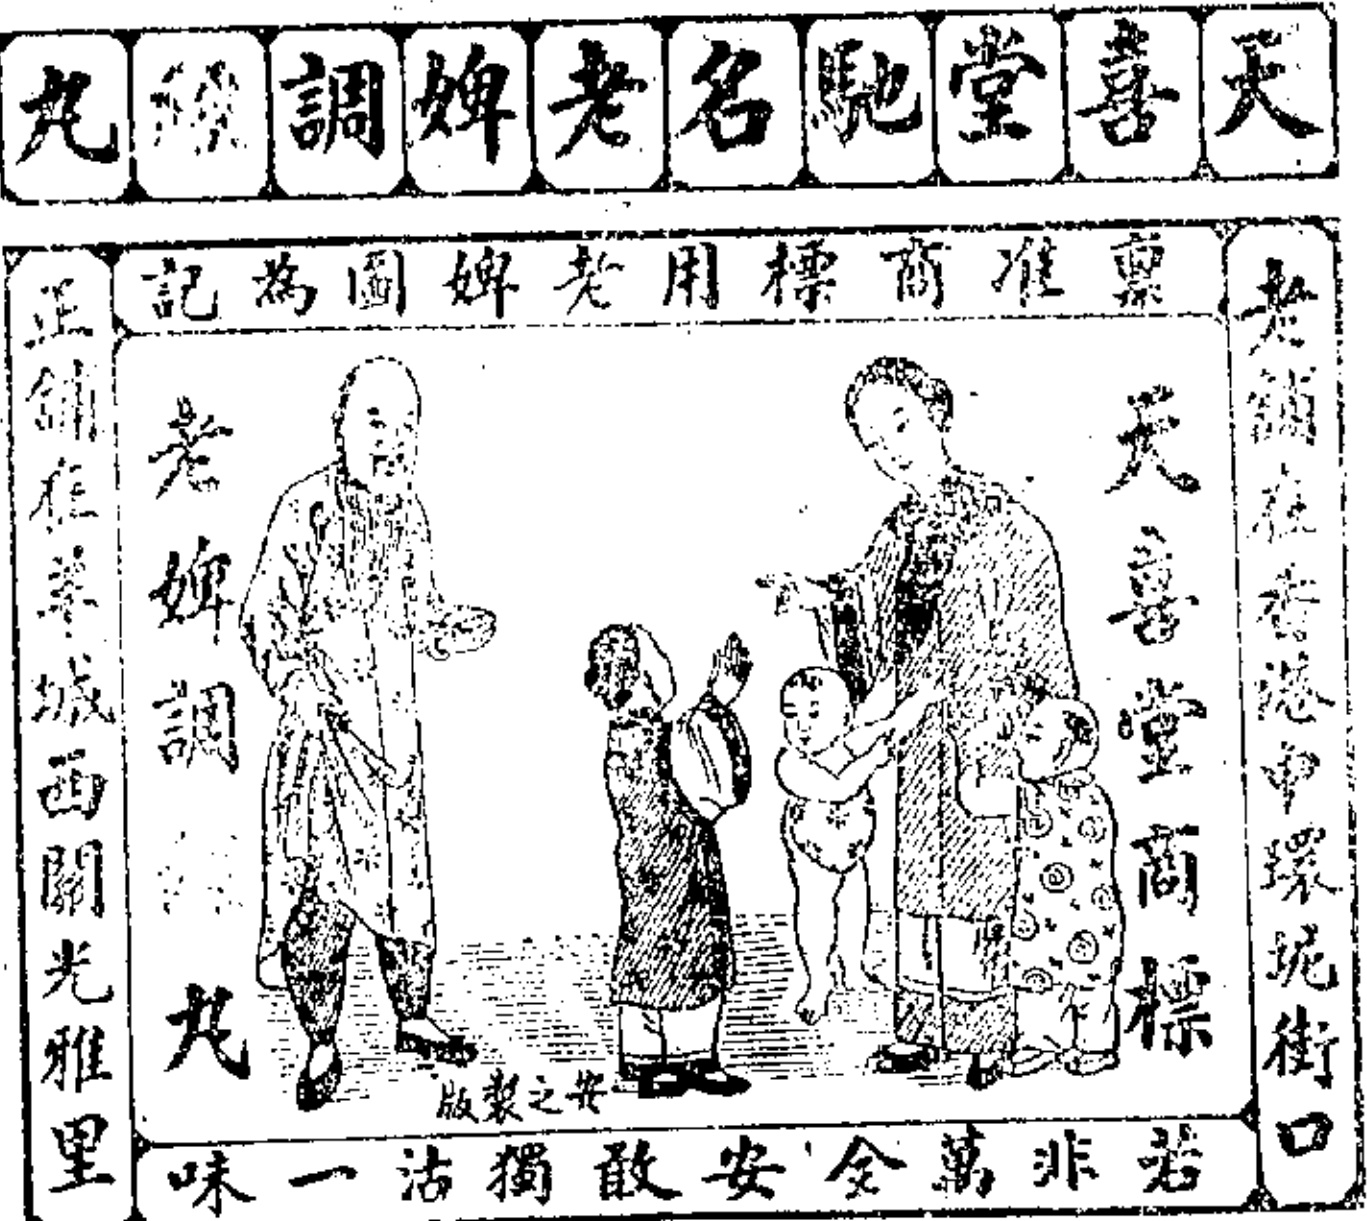 天喜堂馳名老婢調經丸
稟准商標用老婢圖為記
老舖在香港中環坭街口
天喜堂商標
老婢調丸
正舖在羊城西關光雅里
之製版
若非萬全安敢獨沽一味